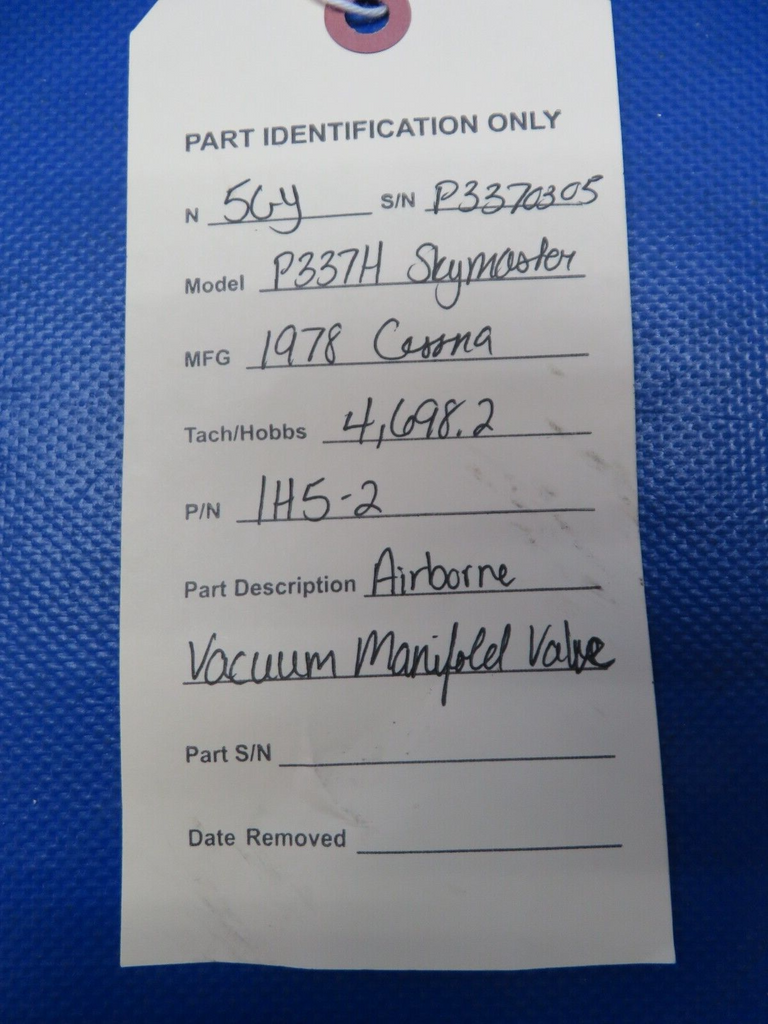 PART IDENTIFICATION ONLY
N 5GY S/N P3370305
Model P337H Skymaster
MFG 1978 Cessna
Tach/Hobbs 4,698.2
P/N 1H5-2
Part Description Airborne
Vacuum Manifold Valve
Part S/N
Date Removed